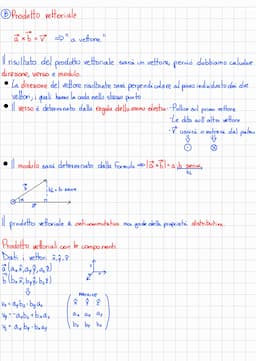 ③ Prodotto vettoriale
a⃗ × b⃗ = v⃗ ⇒ "a vettore b"
Il risultato del prodotto vettoriale sarà un vettore, perciò dobbiamo calcolare
direzione, verso e modulo.
• La direzione del vettore risultante sarà perpendicolare al piano individuato dai due
vettori, i quali hanno la coda nello stesso punto
• Il verso è determinato dalla regola della mano destra: - Pollice sul primo vettore
- Le dita sull'altro vettore
- v⃗ uscirà o entrerà dal palmo
• Il modulo sarà determinato dalla formula ⇒ |a⃗ × b⃗| = a b senα
Il prodotto vettoriale è anticommutativo ma gode della proprietà distributiva.
Prodotto vettoriale con le componenti
Dati i vettori x̂, ŷ, ẑ
a⃗ (aₓx̂, aᵧŷ, a_z ẑ)
b⃗ (bₓx̂, bᵧŷ, b_z ẑ)
MATRICE
x̂ ŷ ẑ
aₓ aᵧ a_z
bₓ bᵧ b_z